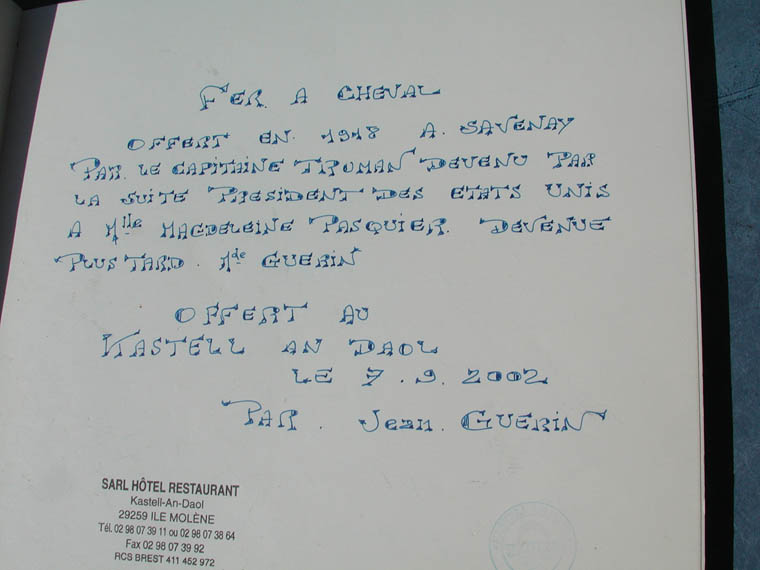 FER A CHEVAL
OFFERT EN. 1918 A. SAVENAY
PAR. LE CAPITAINE TRUMAN DEVENU PAR
LA SUITE PRESIDENT DES ETATS UNIS
A Mlle MAGDELEINE PASQUIER. DEVENUE
PLUS TARD. Mde GUERIN
OFFERT AU
KASTELL AN DAOL
LE 7.9.2002
PAR. Jean. GUERIN
SARL HÔTEL RESTAURANT
Kastell-An-Daol
29259 ILE MOLÈNE
Tél. 02 98 07 39 11 ou 02 98 07 38 64
Fax 02 98 07 39 92
RCS BREST 411 452 972